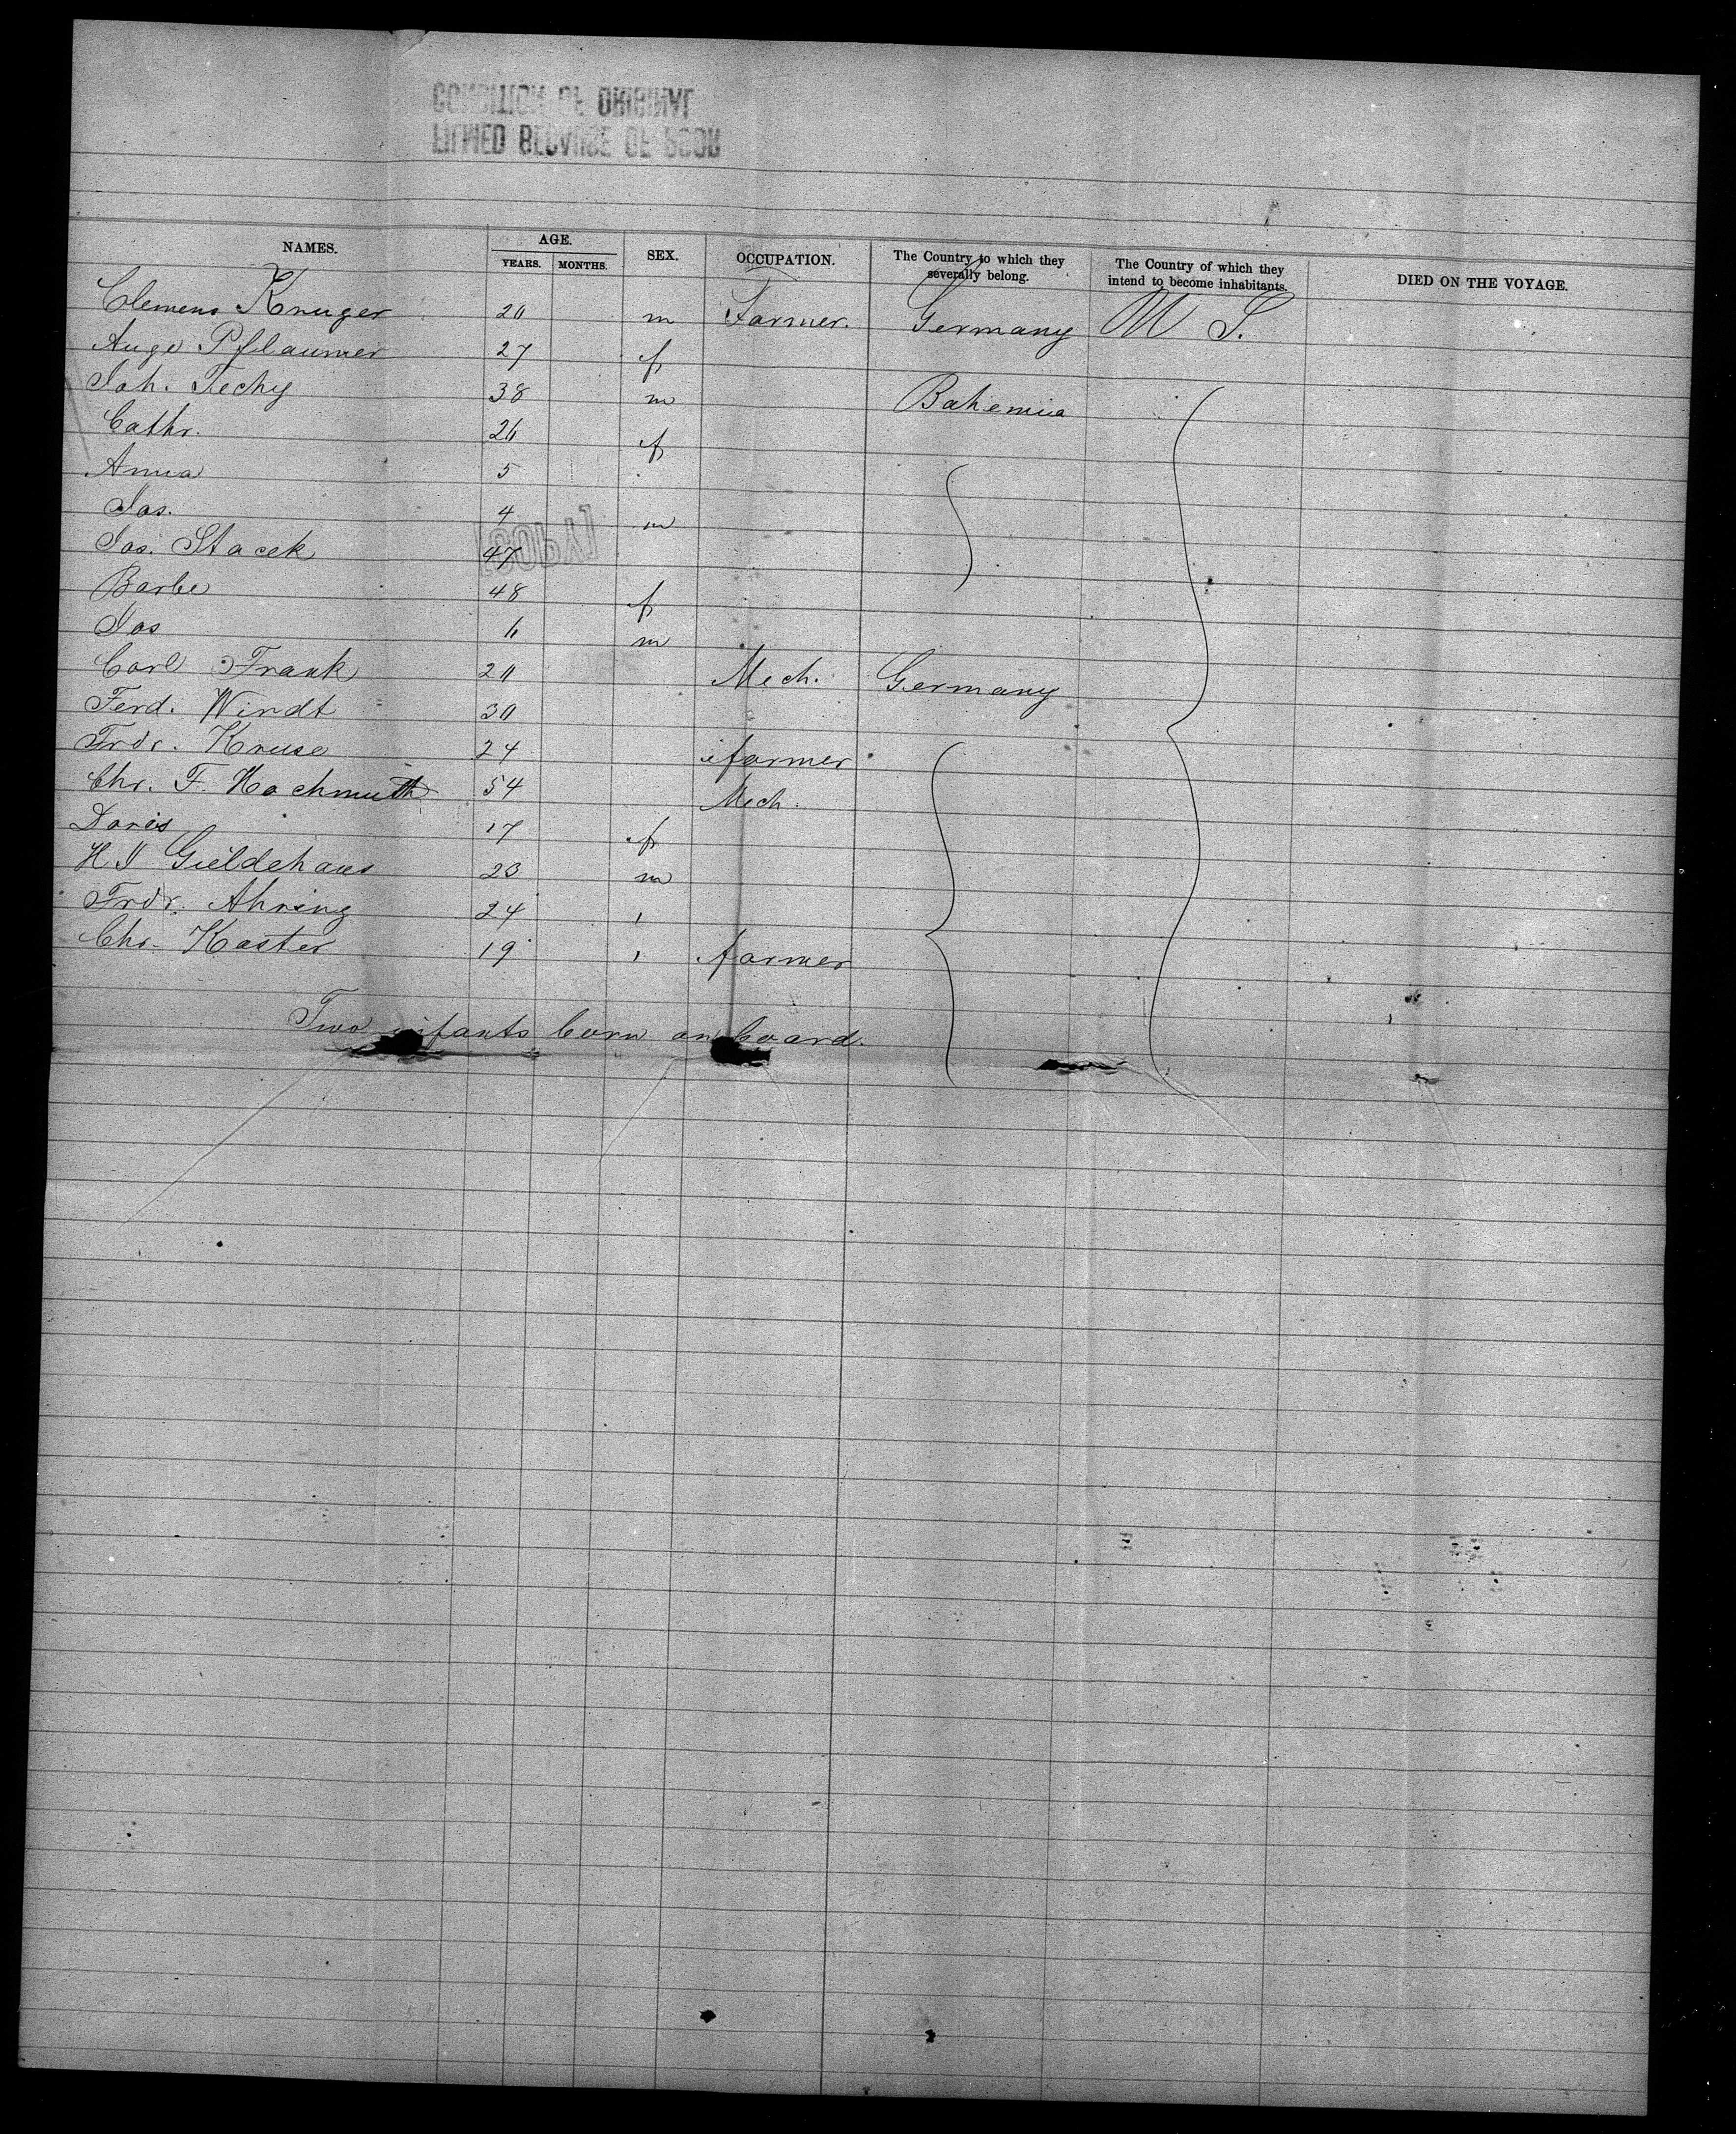 NAMES. AGE. YEARS. MONTHS. SEX. OCCUPATION. The Country to which they severally belong. The Country of which they intend to become inhabitants. DIED ON THE VOYAGE.
Clemens Kruger 20 m Farmer. Germany U S.
Auge Pflaumer 27 f
Joh. Techy 38 m Bohemia
Cathr. 26 f
Anna 5
Jos. 4 m
Jos. Stacek 47
Barbe 48 f
Jos 6 m
Carl Frank 20 Mech. Germany
Ferd. Windt 30
Frdr. Kruse 24 farmer
Chr. F. Hochmuth 54 Mech.
Doris 17 f
H J Gieldehaus 23 m
Frdr. Ahring 24 "
Chr. Koster 19 " farmer
Two infants born on board.